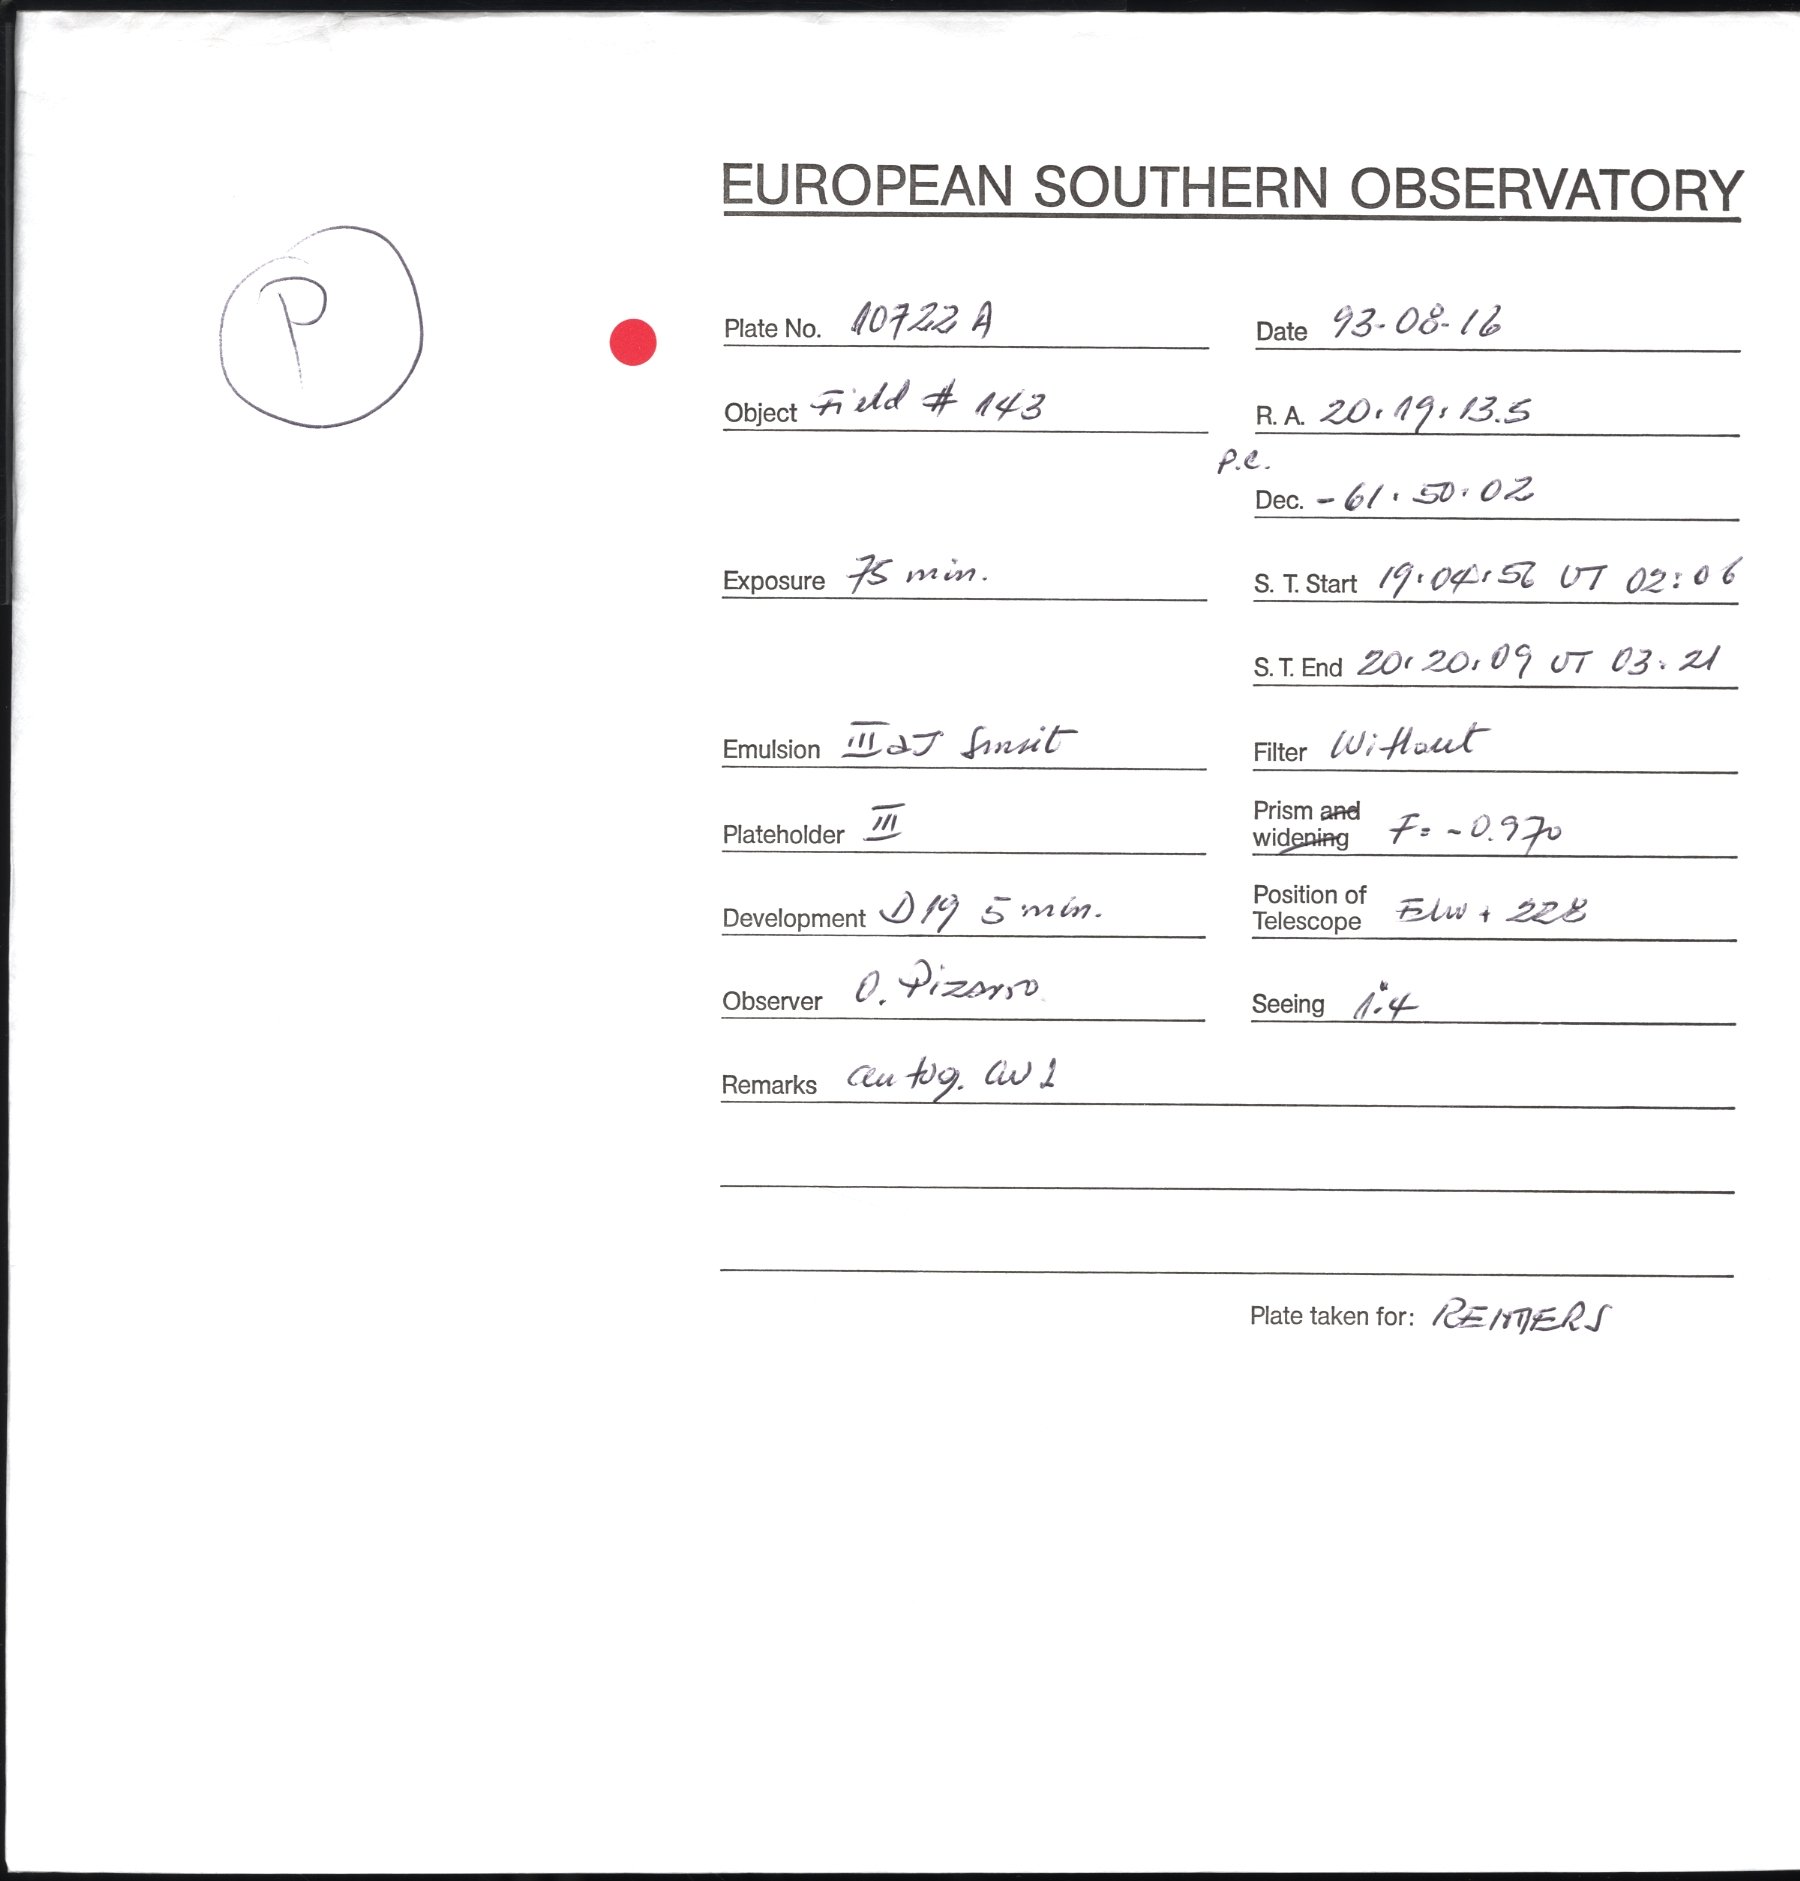 EUROPEAN SOUTHERN OBSERVATORY
P
Plate No. 10722 A
Date 93-08-16
Object Field # 143
R. A. 20:19:13.5
P.C.
Dec. -61:50:02
Exposure 75 min.
S. T. Start 19:04:56 UT 02:06
S. T. End 20:20:09 UT 03:21
Emulsion IIIaJ
Filter Without
Plateholder III
Prism and
widening F= -0.970
Development D19 5 min.
Position of
Telescope EW + 228
Observer O. Pizarro
Seeing 1".4
Remarks autog.
Plate taken for: